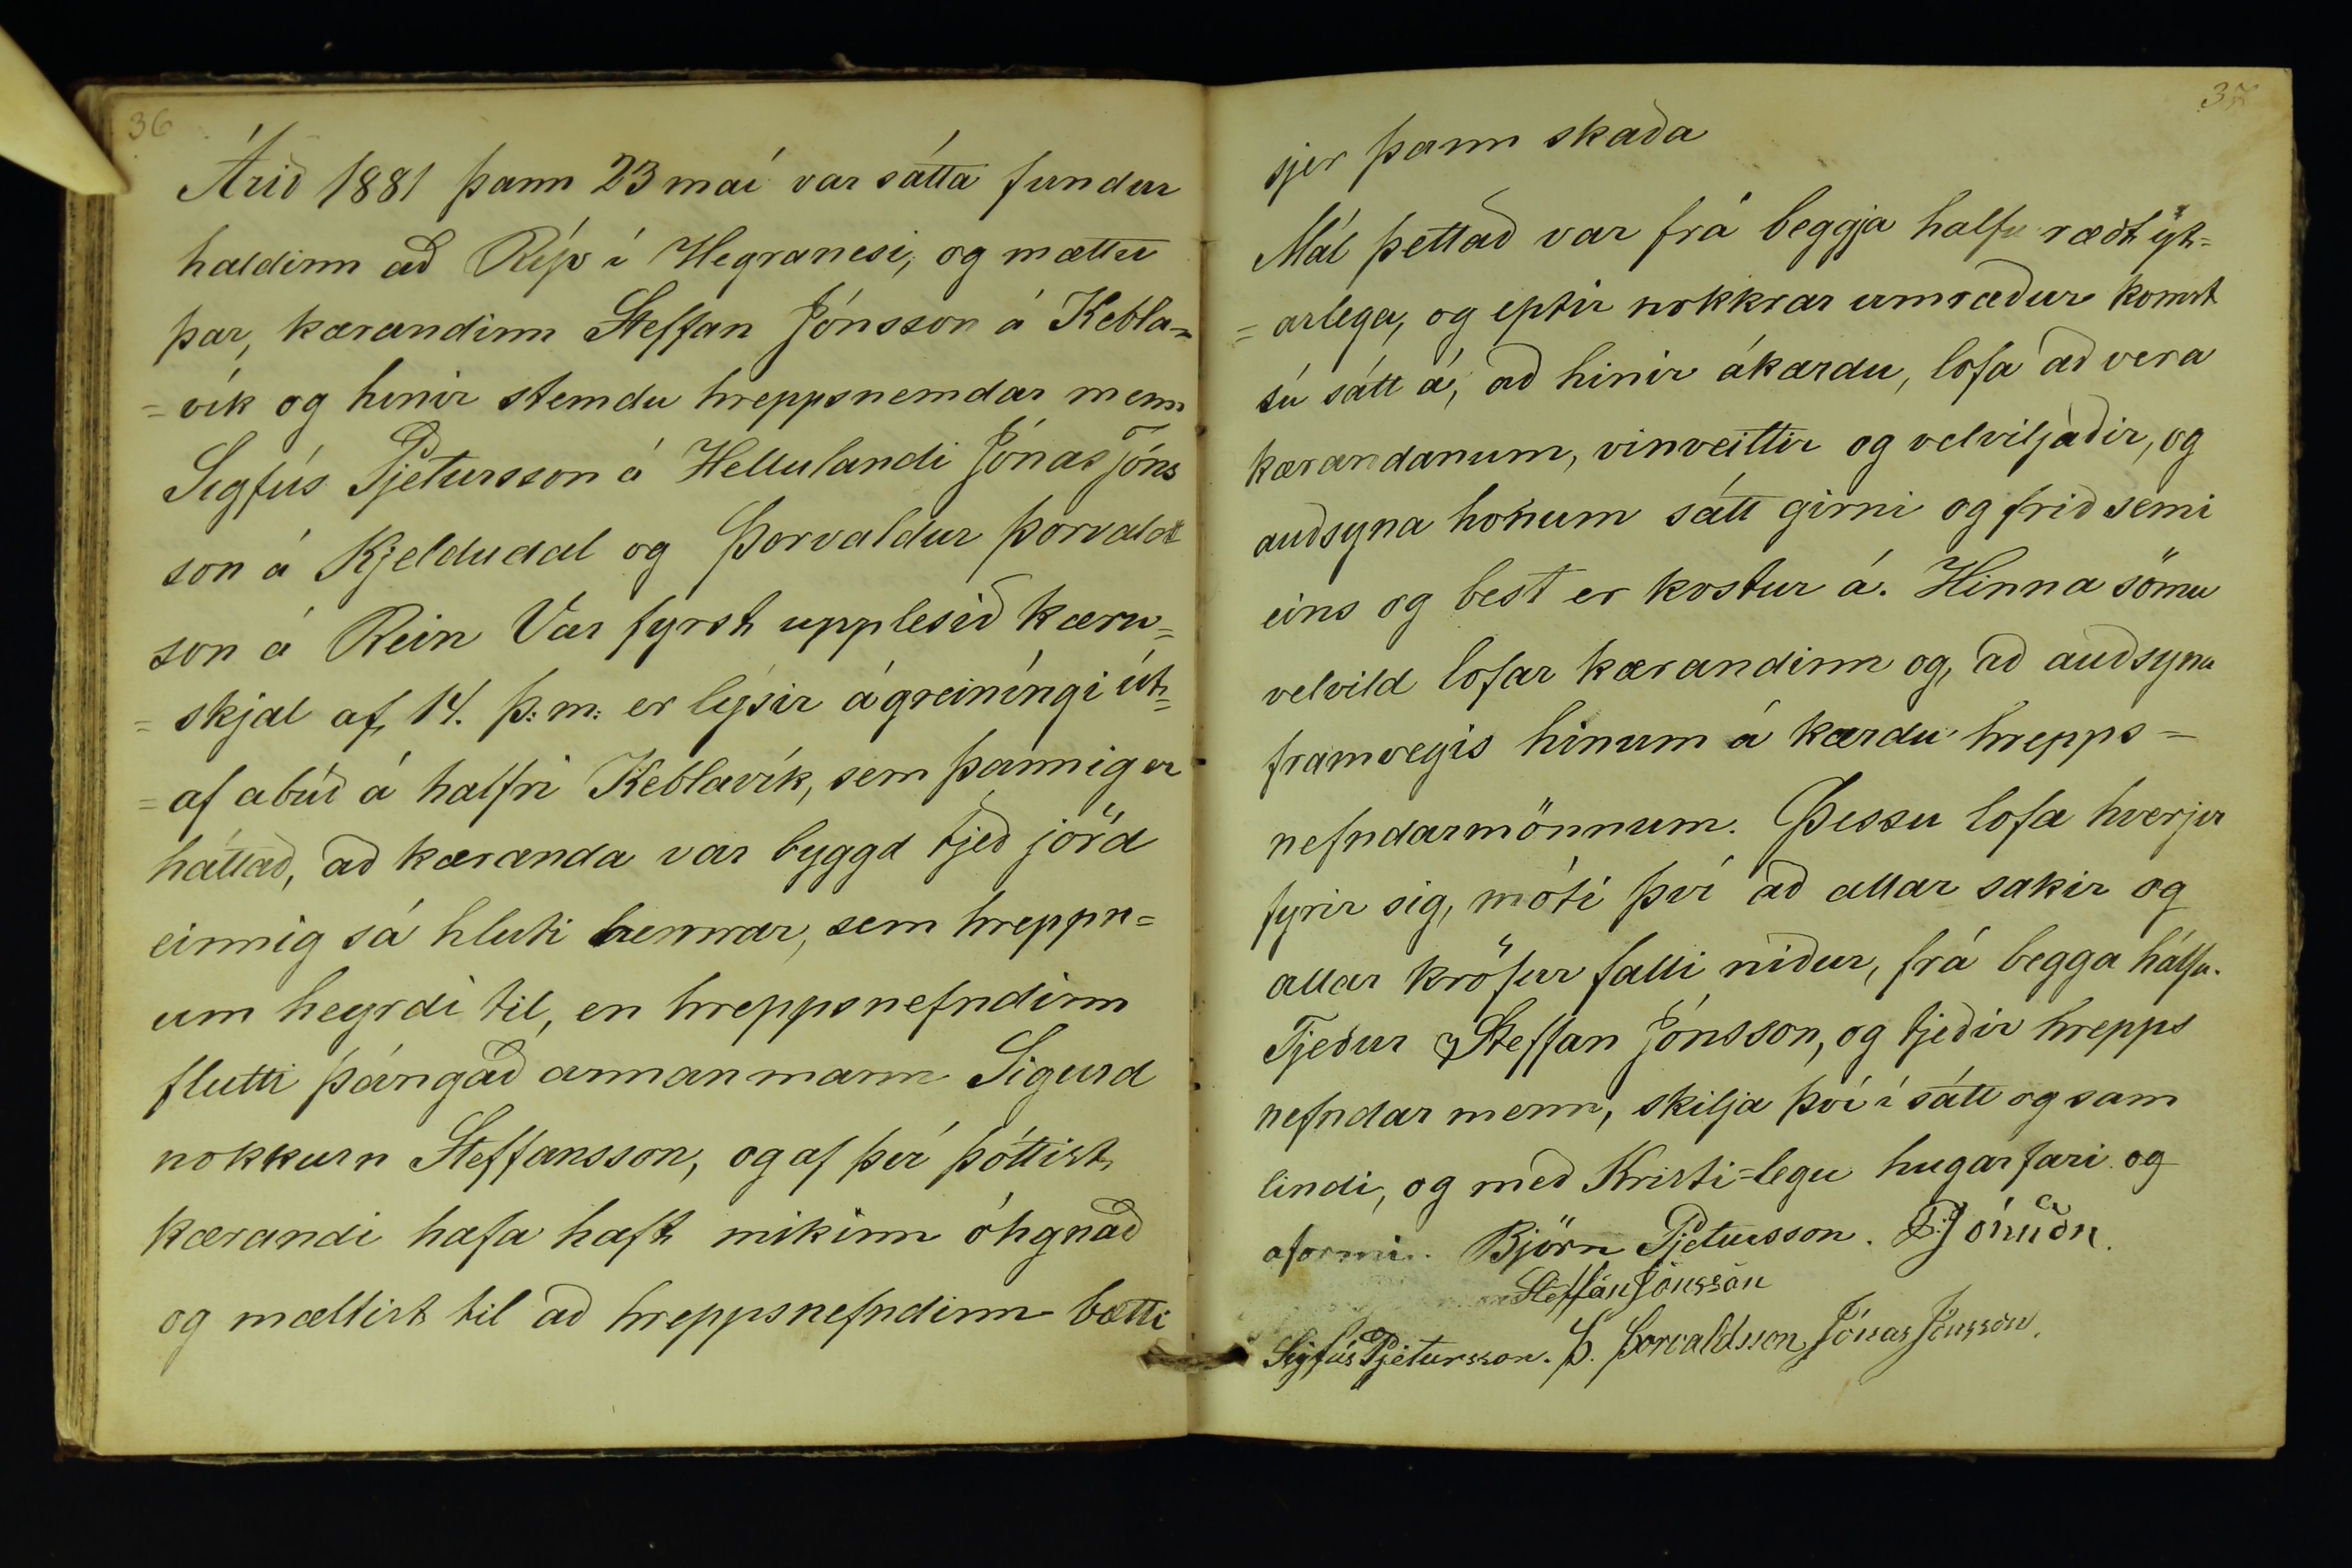 36
Árið 1881 þann 23 maí var sátta fundur
haldinn að Ríp í Hegranesi, og mættu
þar, kærandinn Steffan Jónsson á Kebla=
=vík og hinir stemdu hreppsnemdar menn
Sigfús Pjetursson á Hellulandi Jónas Jóns
son á Kjeldudal og Þorvaldur þorvalds
son á Rein Var fyrst upplesið kæru=
=skjal af 14. þ:m: er lýsir ágreiníngi út=
=af abúð á halfri Keblavík, sem þannig er
háttað, að kæranda var byggd tjeð jörð
einnig sá hluti hennar, sem hreppn=
um heyrdi til, en hreppsnefndinn
flutti þángað annan mann Sigurd
nokkurn Steffansson, og af því þóttist
kærandi hafa haft mikinn óhgnað
og mæltist til að hreppsnefndinn bætti
37
sjer þann skaða
Mál þettað var frá beggja halfu rædt ýt=
=arlega, og eptir nokkrar umræður komst
sú sátt á, að hinir ákærdu, lofa að vera
kærandanum, vinveittir og velviljaðir, og
auðsyna honum sátt girni og frið semi
eins og best er kostur á. Hinna sömu
velvild lofar kærandinn og, að auðsyna
framvegis hinum á kærdu hrepps=
nefndarmönnum. Þessu lofa hverjir
fyrir sig, móti því að allar sakir og
allar kröfur falli niður, frá begga hálfu.
Tjeður Steffan Jónsson, og tjeðir hrepps
nefndar menn, skilja því í sátt og sam
lindi, og með Kristi=legu hugarfari og
aformi. Björn Pjetursson.
Steffán Jónsson
Sigfús Pjetursson. Þ. Þorvaldsson Jónas Jónsson.